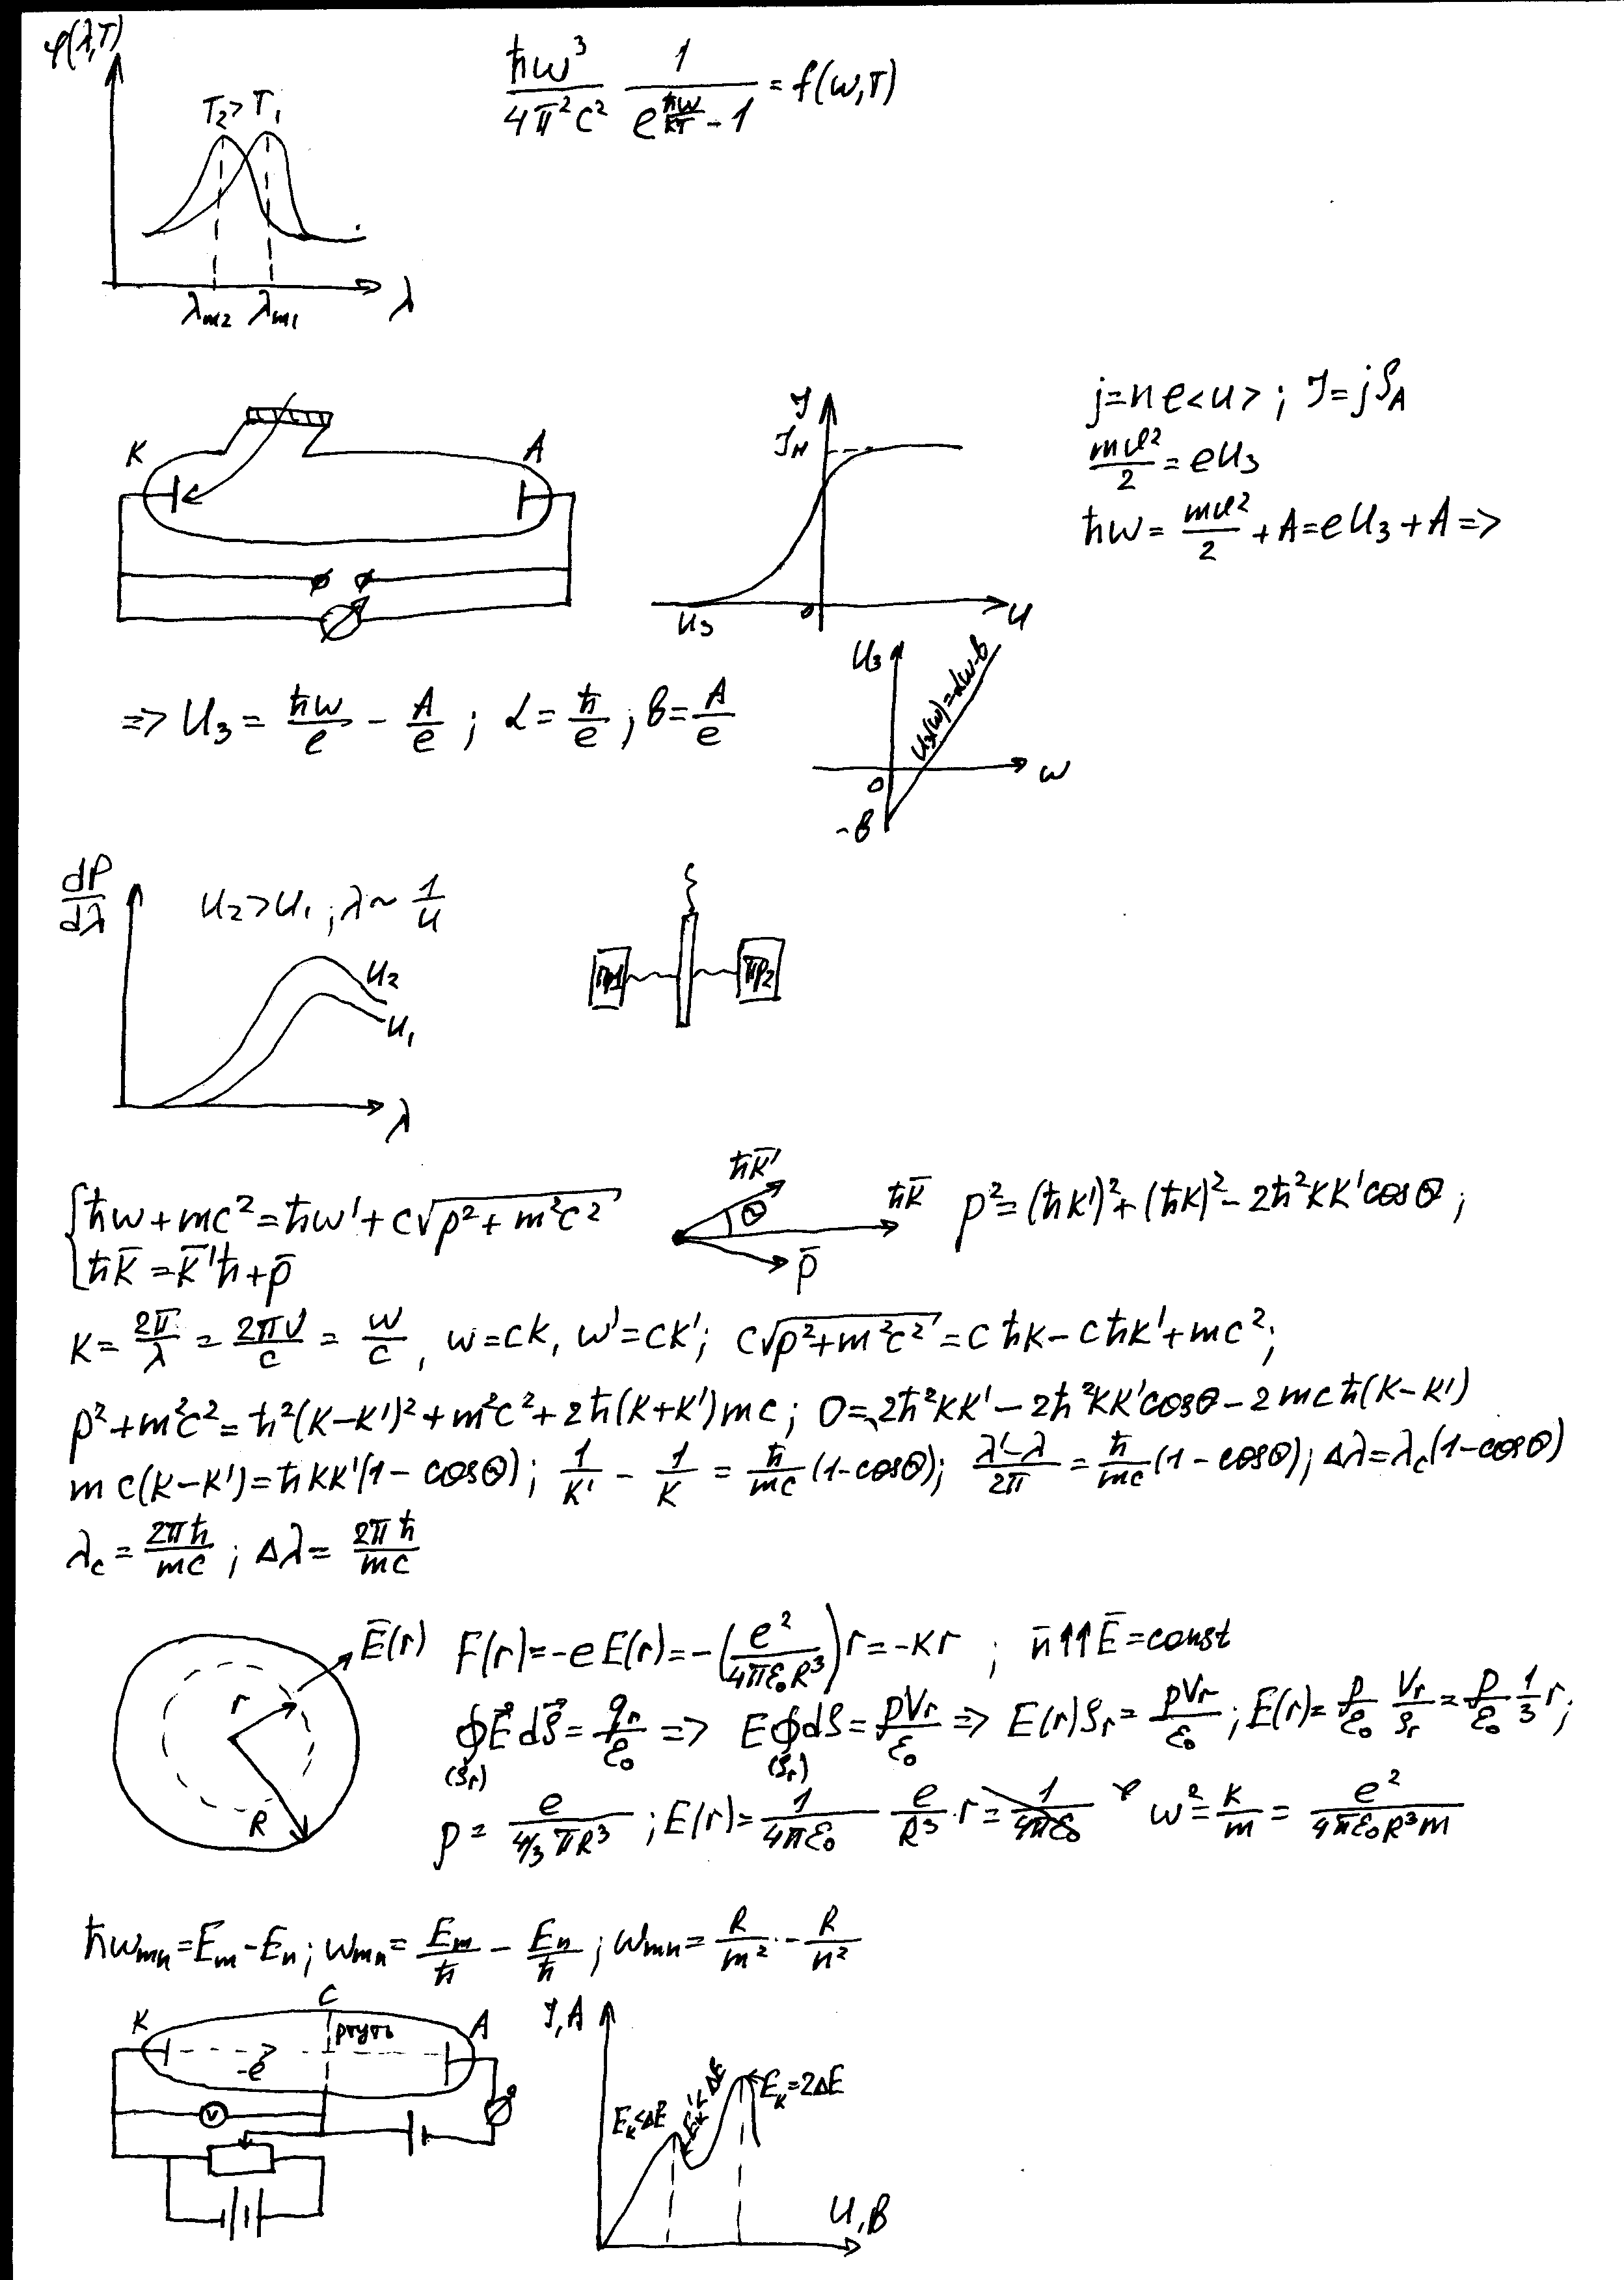 φ(λ,T)
ħω³/4π²c² 1/(e^(ħω/kT) - 1) = f(ω,T)
T₂>T₁
λm₂ λm₁ λ
К А
J
Jн
Uз 0 U
j=ne<u>; J=jS_A
mv²/2 = eUз
ħω = mv²/2 + A = eUз + A =>
=> Uз = ħω/e - A/e; α = ħ/e; в = A/e
Uз
Uз(ω)=αω-в
0 ω
-в
dP/dλ
U₂>U₁; λ~1/U
U₂
U₁
λ
ПР1 ПР2
{ħω+mc²=ħω'+c√(p²+m²c²)
ħk̄=k̄'ħ+p̄
ħk̄' θ ħk̄ p̄
p²=(ħk')²+(ħk)²-2ħ²kk'cosθ;
k=2π/λ=2πν/c=ω/c, ω=ck, ω'=ck'; c√(p²+m²c²)=cħk-cħk'+mc²;
p²+m²c²=ħ²(k-k')²+m²c²+2ħ(k+k')mc; 0=2ħ²kk'-2ħ²kk'cosθ-2mcħ(k-k')
mc(k-k')=ħkk'(1-cosθ); 1/k' - 1/k = ħ/mc (1-cosθ); (λ'-λ)/2π = ħ/mc (1-cosθ); Δλ=λc(1-cosθ)
λc=2πħ/mc; Δλ=2πħ/mc
r R Ē(r)
F(r)=-eE(r)=-(e²/4πε₀R³)r=-kr; n̄↑↑Ē=const
∮(Sr) E⃗dS⃗ = qr/ε₀ => E∮(Sr) dS = ρVr/ε₀ => E(r)Sr = ρVr/ε₀; E(r)= ρ/ε₀ Vr/Sr = ρ/ε₀ 1/3 r;
ρ = e/(4/3 πR³); E(r) = 1/4πε₀ e/R³·r = 1/4πε₀ ω²=k/m= e²/4πε₀R³m
ħωmn=Em-En; ωmn=Em/ħ - En/ħ; ωmn=R/m² - R/n²
К С А
ртуть
-e
V
J,A
Eк<ΔE
Eк=2ΔE
U,В